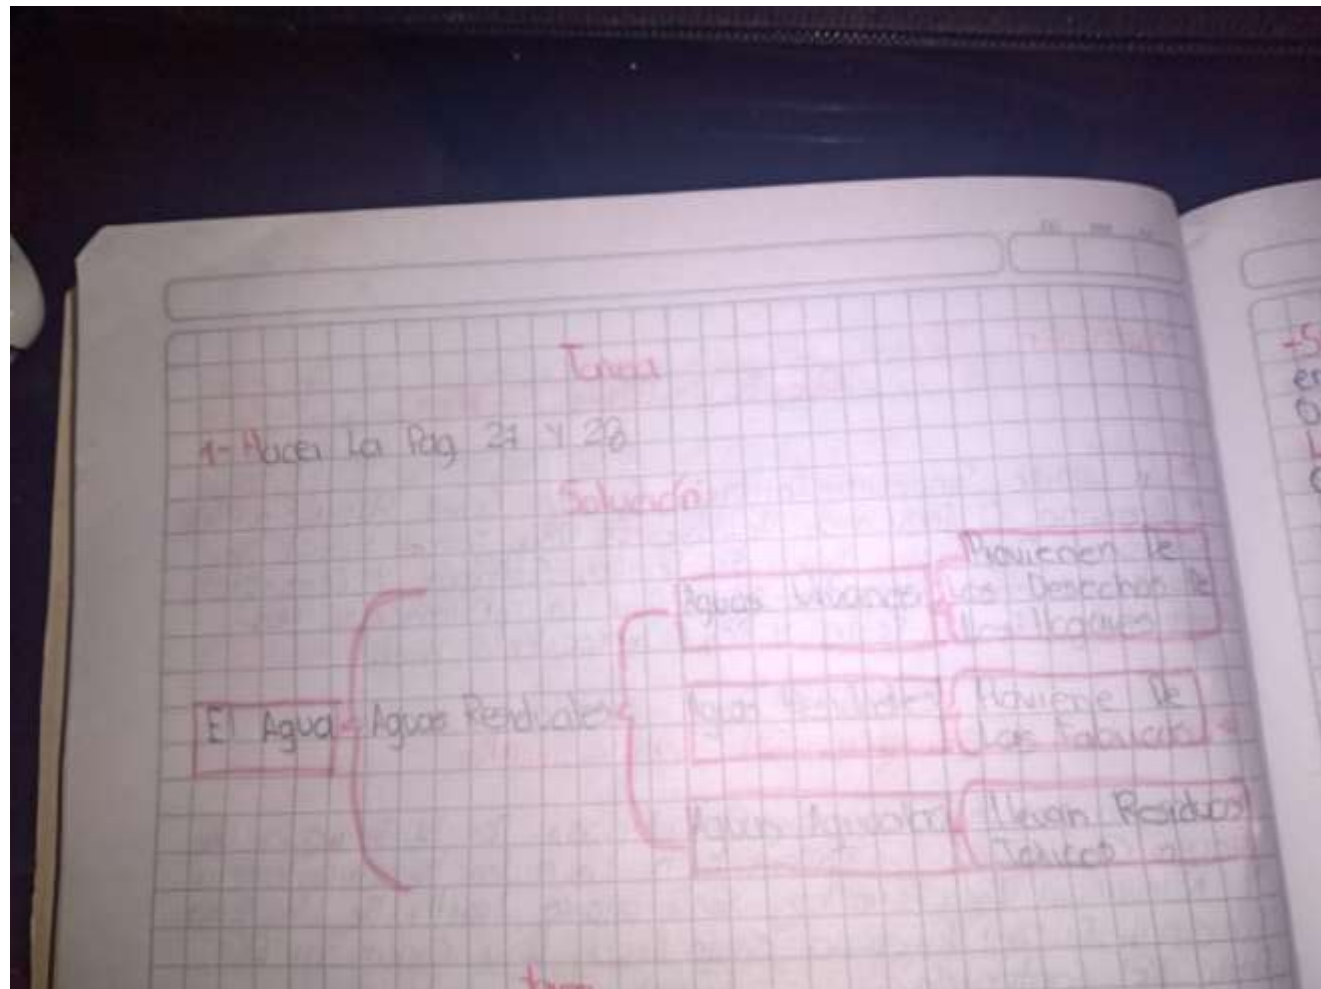 Tarea
1- Hacer La Pag 27 y 28
Solución
El Agua
Aguas Residuales
Aguas Urbanas
Provienen De
Los Desechos De
Los Hogares
Aguas
Proviene De
Las Fabricas
Aguas
Llevan Residuos
Toxicos
-S
er